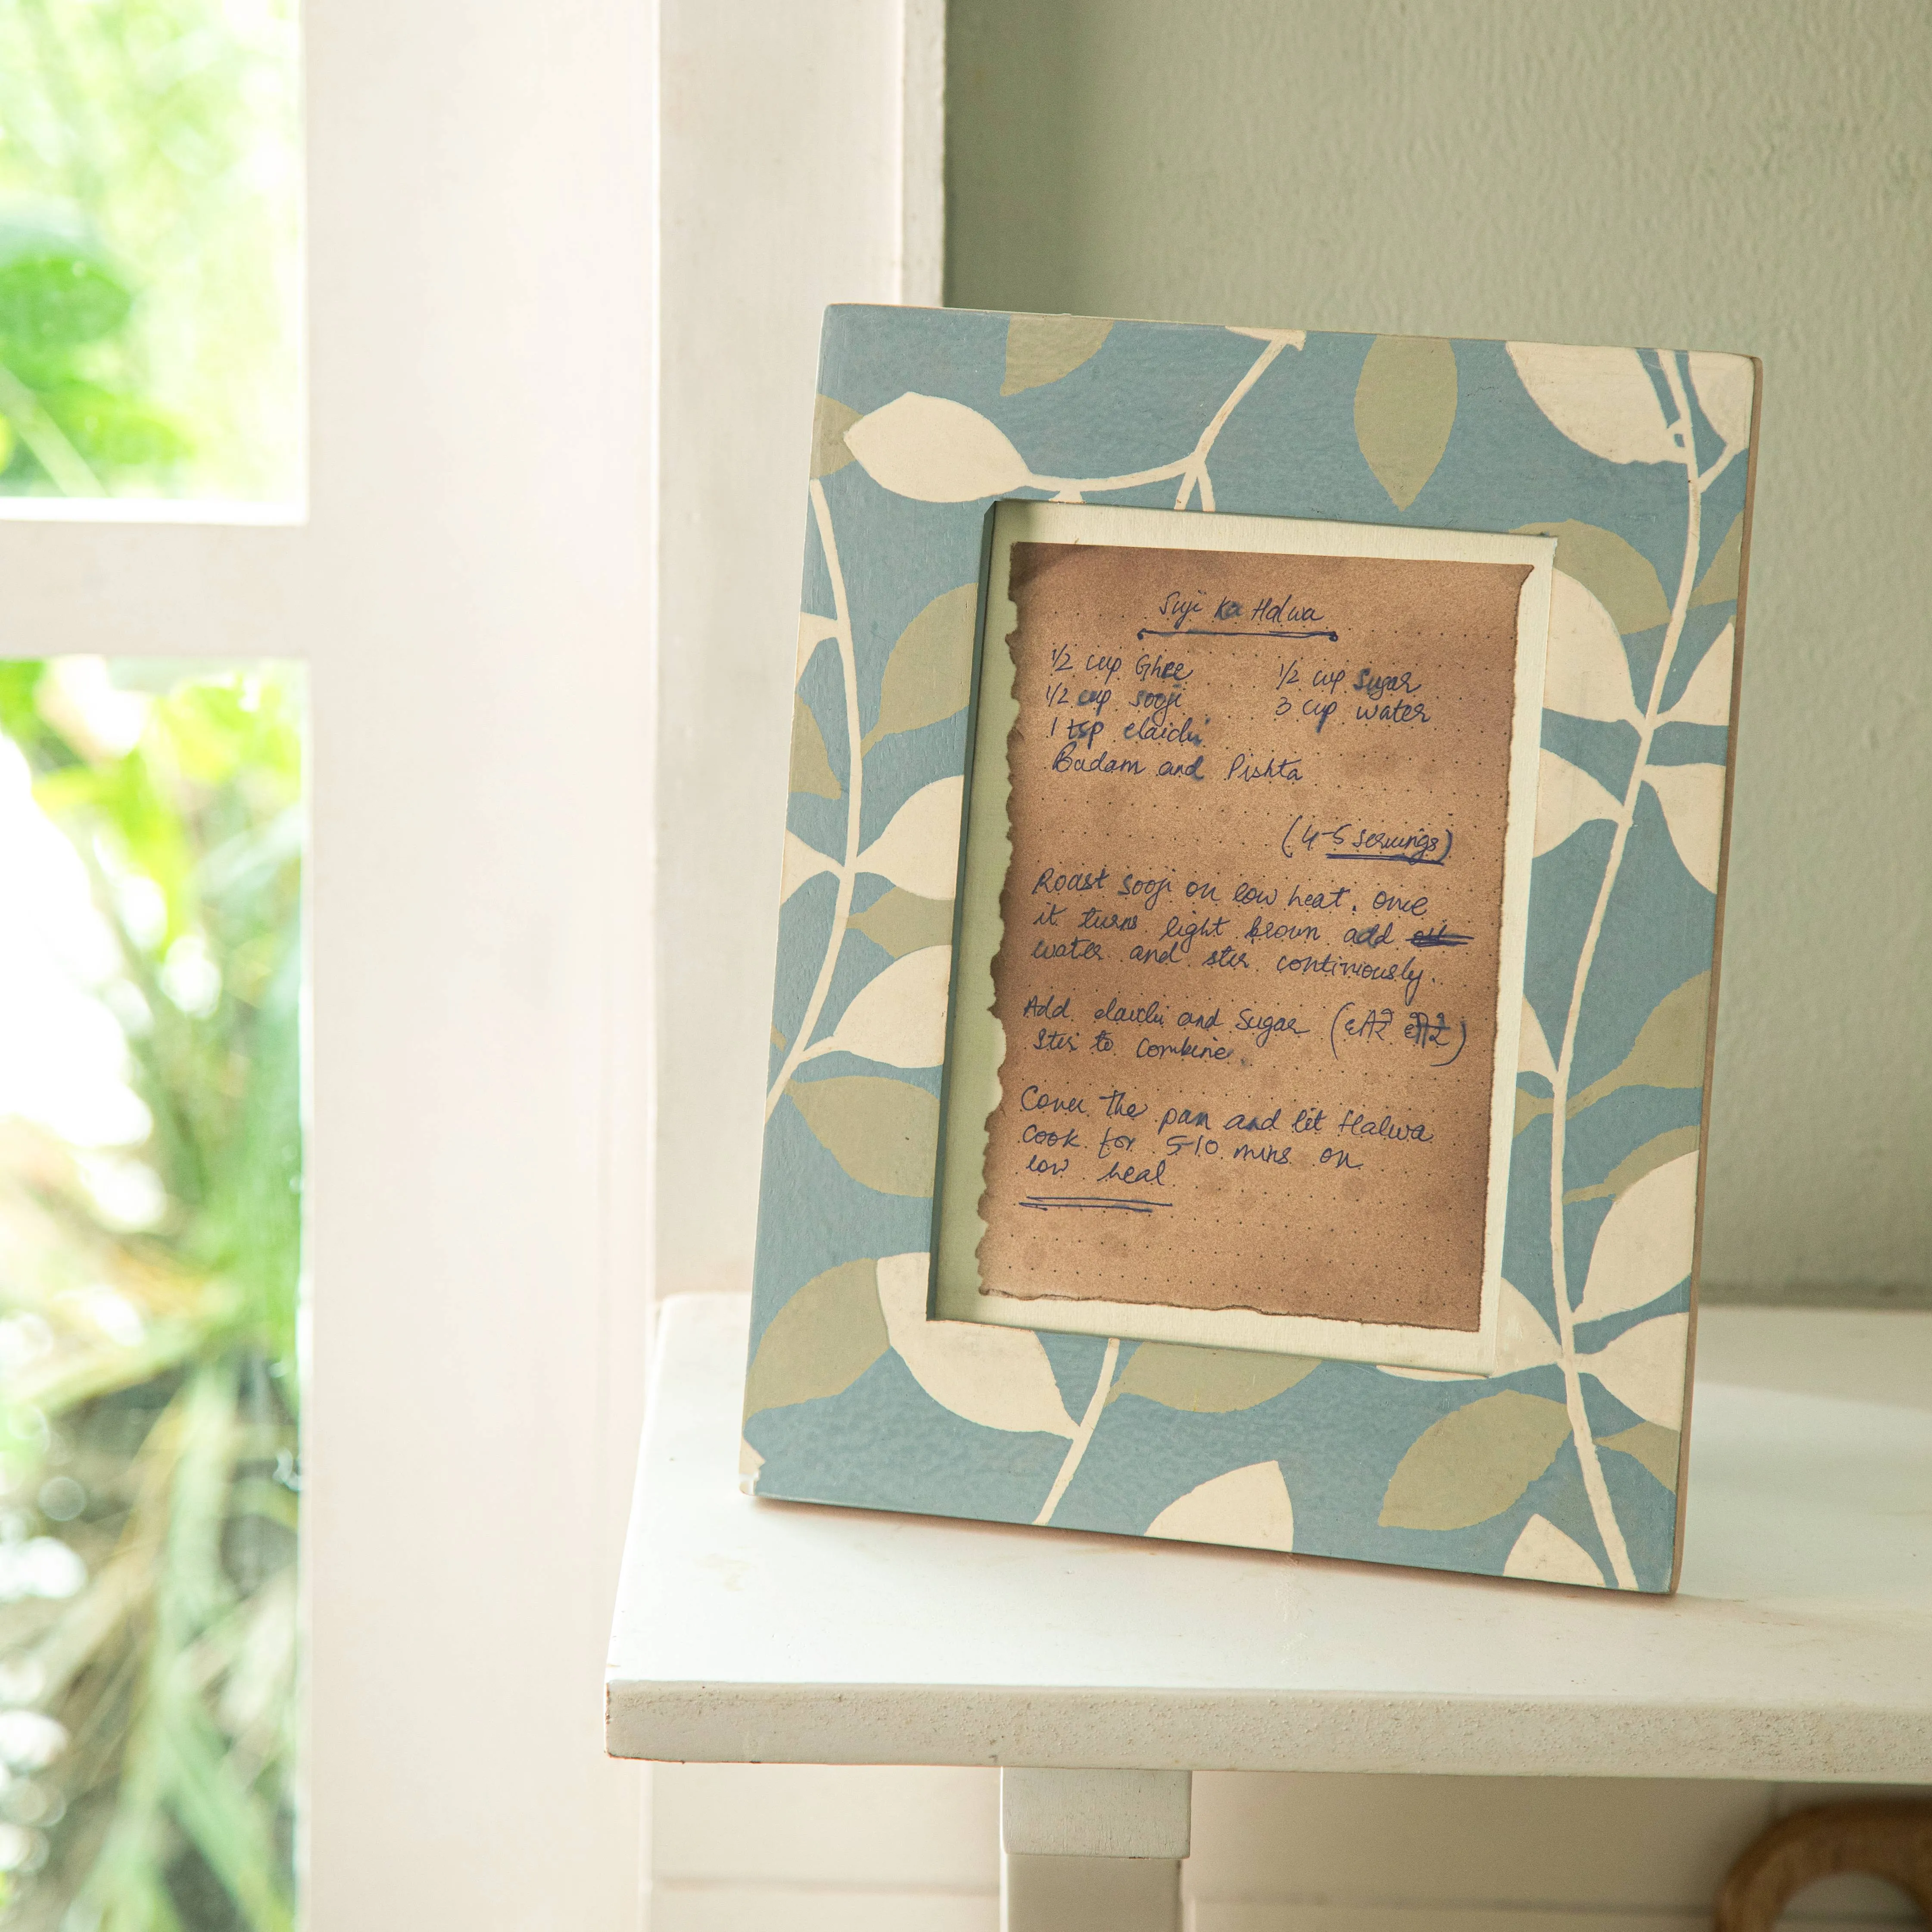 Suji Ka Halwa
1/2 cup Ghee
1/2 cup sooji
1 tsp elaichi
Badam and Pishta
1/2 cup sugar
3 cup water
(4-5 servings)
Roast sooji on low heat. Once
it turns light brown add
water and stir continiously.
Add elaichi and Sugar
Stir to combine.
Cover the pan and let Halwa
cook for 5-10 mins on
low heat